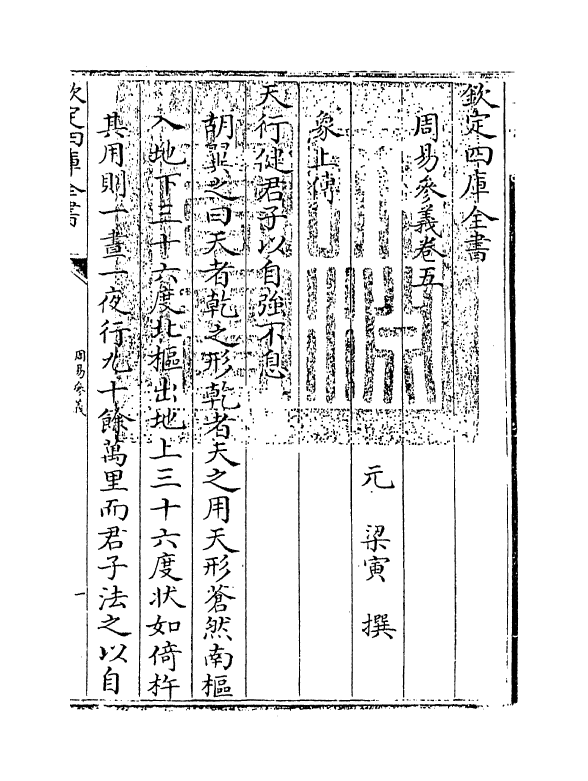 欽定四庫全書
周易參義卷五
元 梁寅 撰
象上傳
天行健君子以自強不息
胡㢲之曰天者乾之形乾者天之用天形蒼然南樞
入地下三十六度北樞出地上三十六度狀如倚杵
其用則一晝一夜行九十餘萬里而君子法之以自
欽定四庫全書
周易參義
一